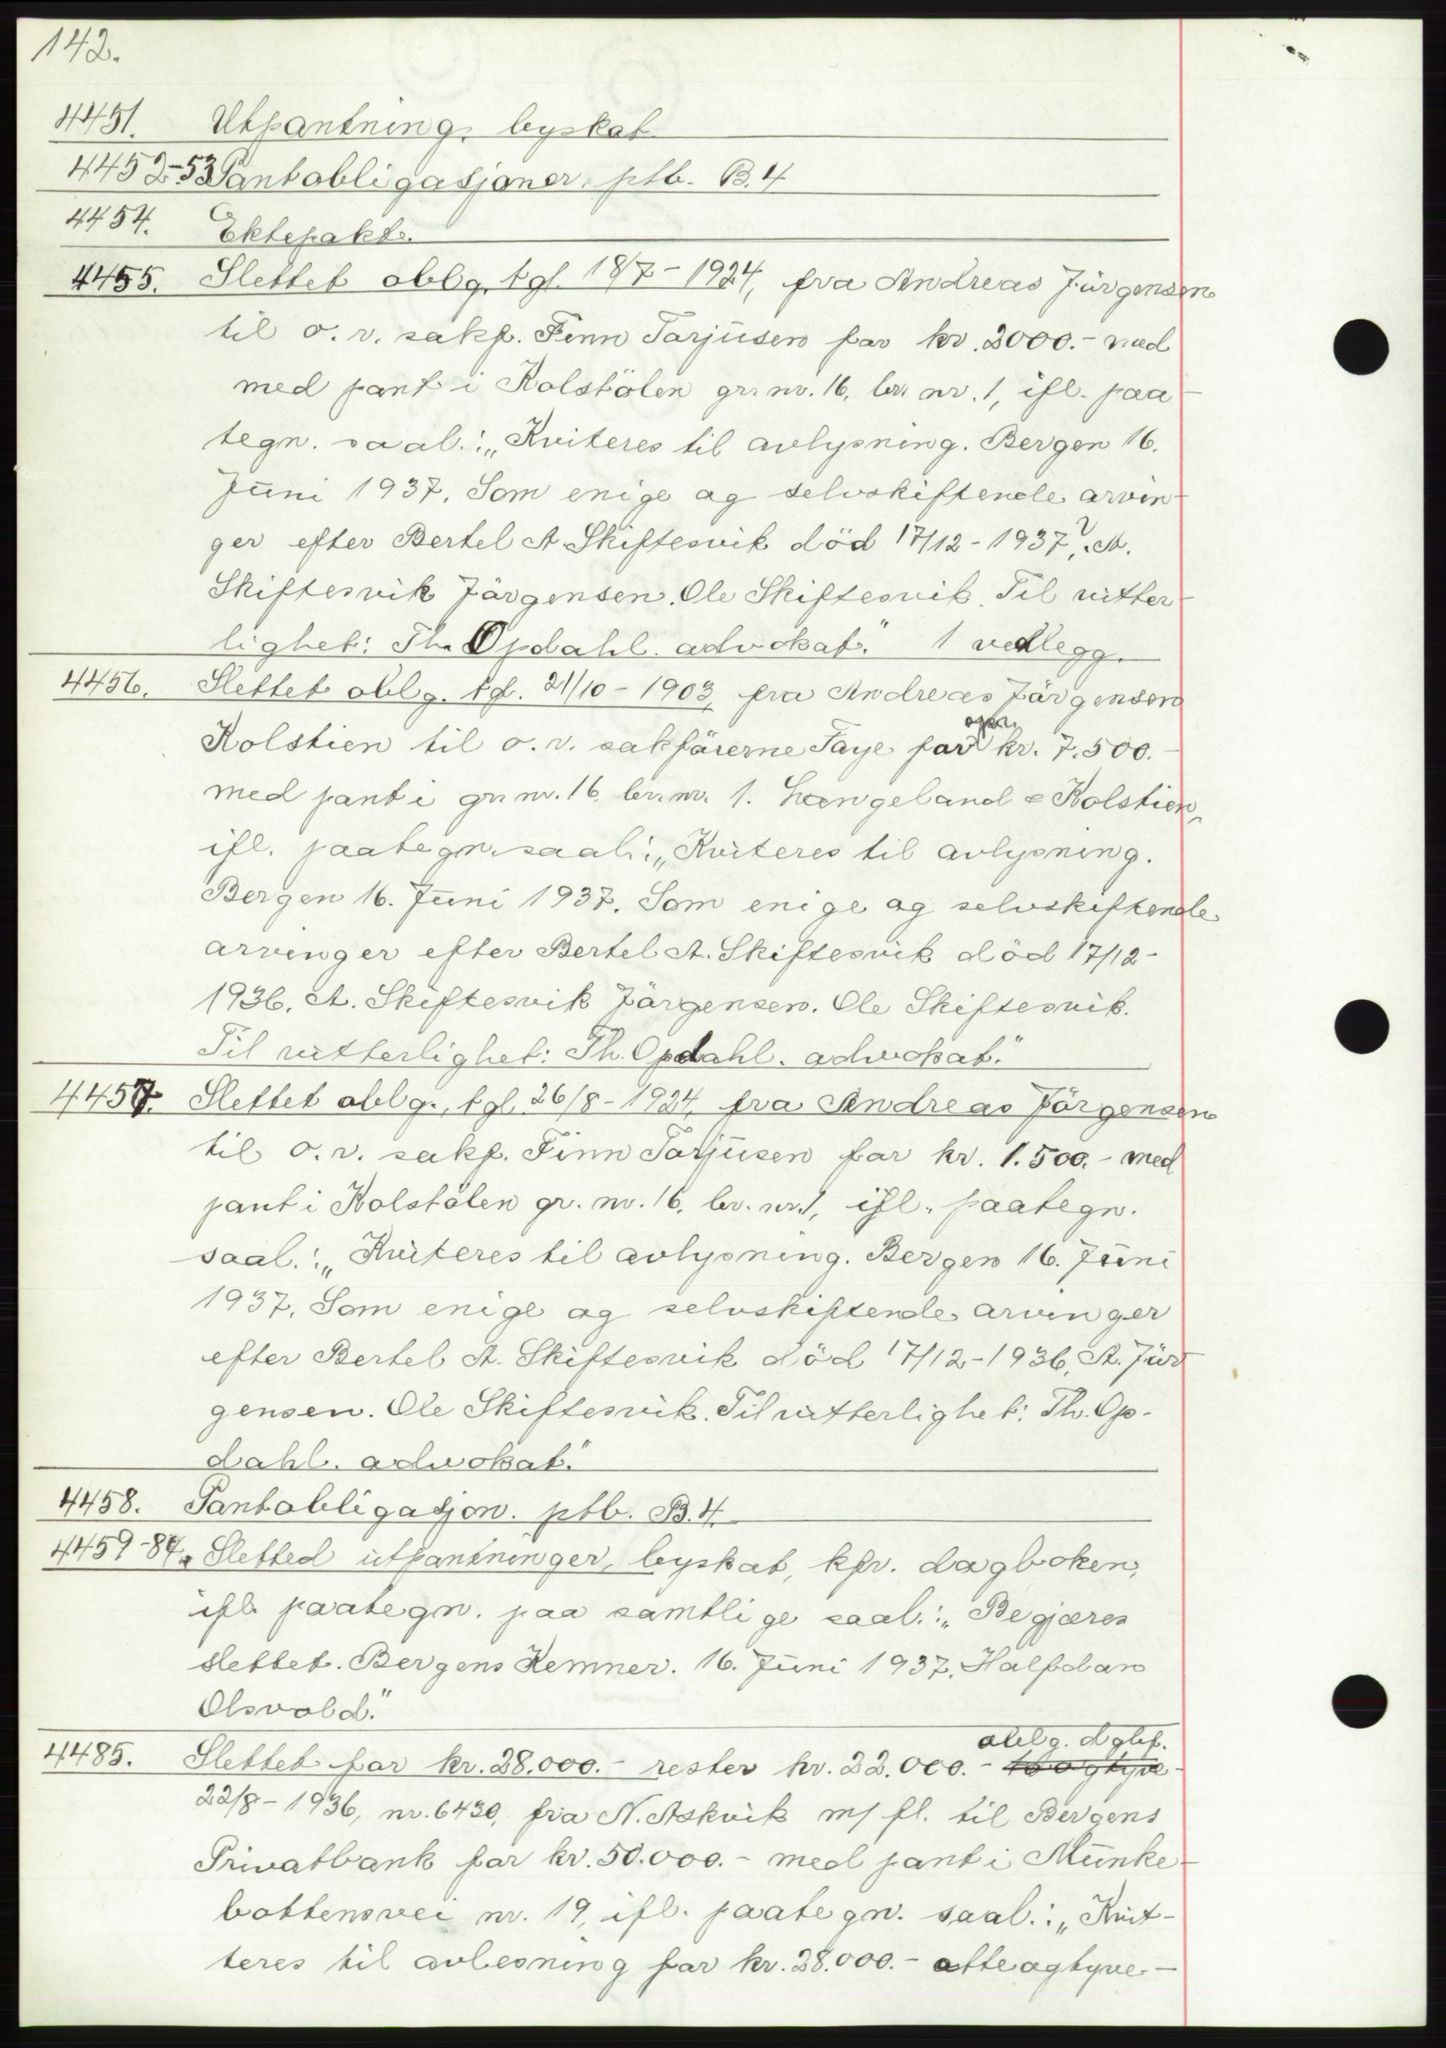 142.
4451. Utpantning, byskat
4452-53 Pantobligasjoner, ptb. B.4
4454. Ektepakt.
4455. Slettet oblg. tgl. 18/7-1924, fra Andreas Jürgensen
til o.r. sakf. Finn Tarjusen for kr. 2000.- med
med pant i Kolstölen gr. nr. 16, br. nr. 1, ifl. paa-
tegn. saal.: „Kviteres til avlysning. Bergen 16.
Juni 1937. Som enige og selvskiftende arvin-
ger efter Bertel A. Skiftesvik död 17/12-1937?. A.
Skiftesvik Jörgensen. Ole Skiftesvik. Til vitter-
lighet: Th. Opdahl. advokat." 1 vedlegg.
4456. Slettet oblg. tgl. 21/10-1903, fra Andreas Jörgensen
Kolstien til o.r. sakförerne Faye for opr. kr. 7.500.-
med pant i gr. nr. 16, br. nr. 1. Langeland e Kolstien,
ifl. paategn. saal.: „Kviteres til avlysning.
Bergen 16. Juni 1937. Som enige og selvskiftende
arvinger efter Bertel A. Skiftesvik död 17/12-
1936. A. Skiftesvik Jörgensen. Ole Skiftesvik.
Til vitterlighet: Th. Opdahl. advokat."
4457. Slettet oblg., tgl. 26/8-1924, fra Andreas Jörgensen
til o.r. sakf. Finn Tarjusen for kr. 1.500.- med
pant i Kolstölen gr. nr. 16, br. nr. 1, ifl. paategn.
saal.: „Kviteres til avlysning. Bergen 16. Juni
1937. Som enige og selvskiftende arvinger
efter Bertel A. Skiftesvik död 17/12-1936. A. Jür
gensen. Ole Skiftesvik. Til vitterlighet: Th. Op-
dahl. advokat."
4458. Pantobligasjon. ptb. B.4.
4459-84. Sletted utpantninger, byskat, kfr. dagboken,
ifl. paategn. paa samtlige saal.: „Begjæres
slettet. Bergens Kemner. 16. Juni 1937. Halfdan
Olsvold."
4485. Slettet for kr. 28.000.- rester kr. 22.000.- oblg. dgbf.
22/8-1936, nr. 6430, fra N. Askvik m/ fl. til Bergens
Privatbank for kr. 50.000.- med pant i Munke-
bottensvei nr. 19, ifl. paategn. saal.: „Kvit-
teres til avlesning for kr. 28.000.- atteogtyve-